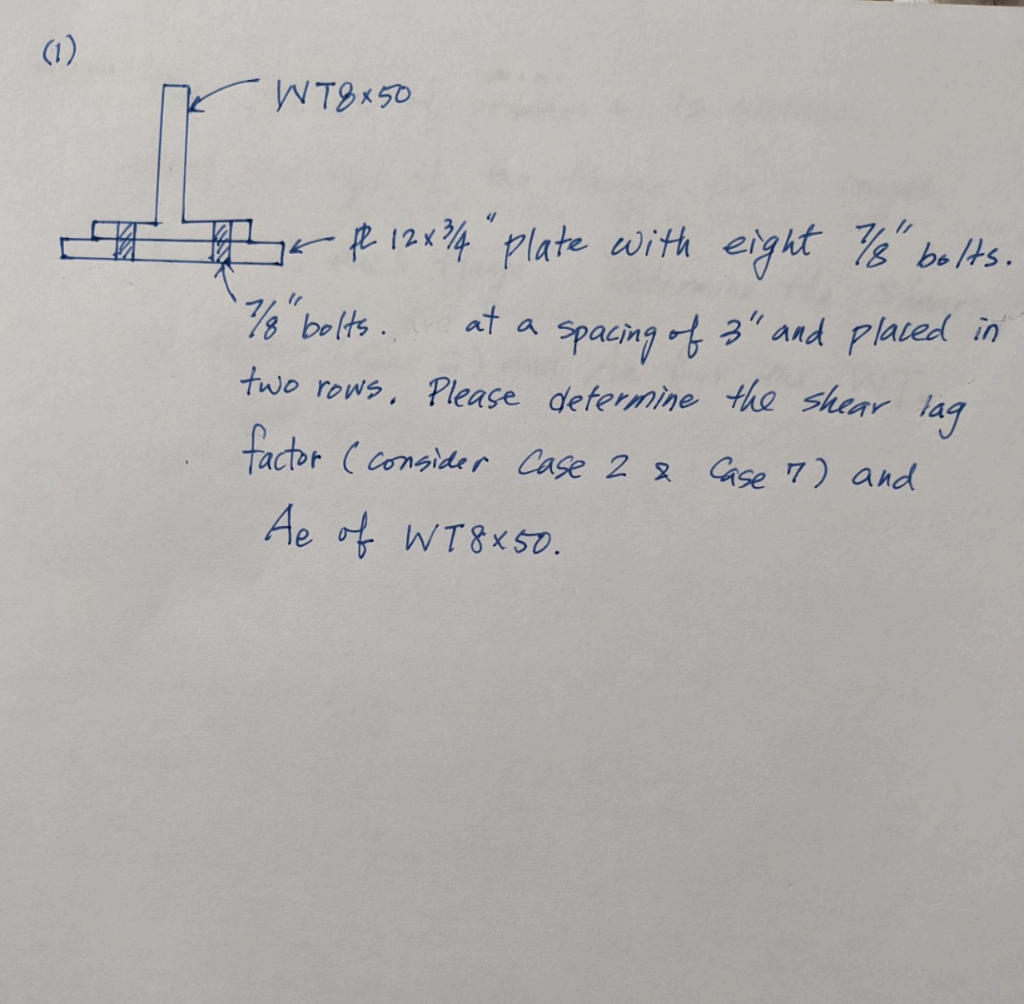 (1)
WT8x50
PL 12x3/4" plate with eight 7/8" bolts.
7/8" bolts. at a spacing of 3" and placed in
two rows. Please determine the shear lag
factor (consider Case 2 & Case 7) and
Ae of WT8x50.